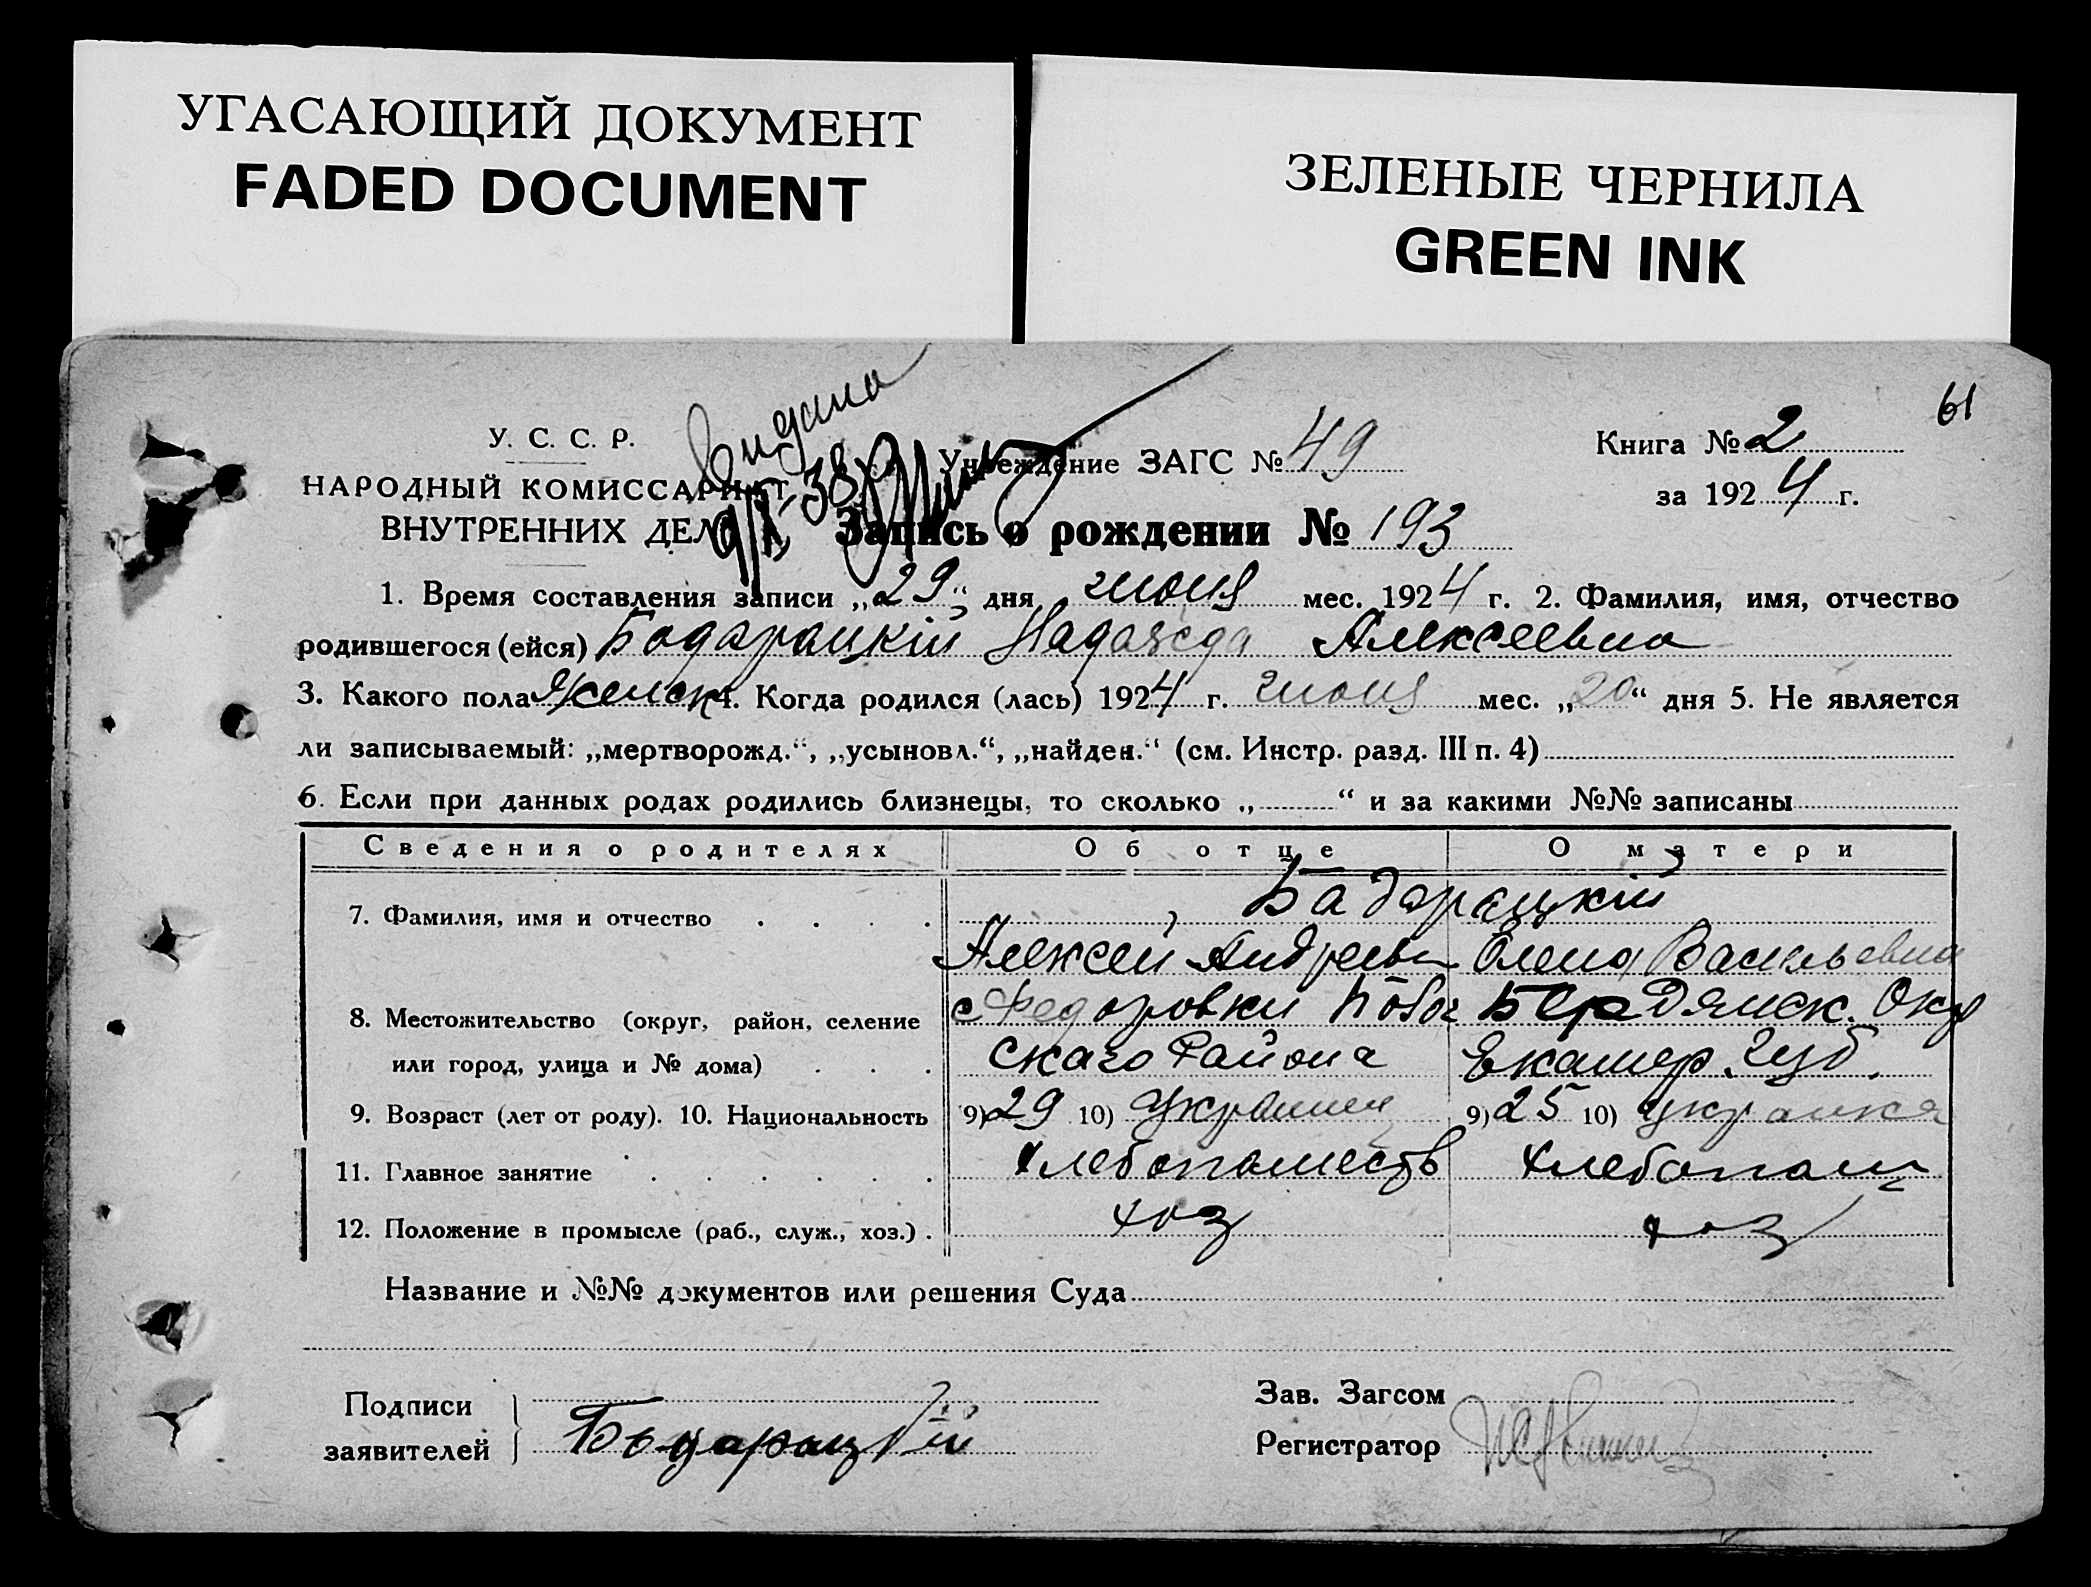 УГАСАЮЩИЙ ДОКУМЕНТ
FADED DOCUMENT
ЗЕЛЕНЫЕ ЧЕРНИЛА
GREEN INK
61
У. С. С. Р.
НАРОДНЫЙ КОМИССАРИАТ
ВНУТРЕННИХ ДЕЛ
Видана
Учреждение ЗАГС № 49
Книга № 2
за 1924 г.
Запись о рождении № 193
1. Время составления записи „29“ дня июня мес. 1924 г. 2. Фамилия, имя, отчество
родившегося (ейся) Бодарацкій Надежда Алексеевна
3. Какого пола женск 4. Когда родился (лась) 1924 г. июня мес. „20“ дня 5. Не является
ли записываемый: „мертворожд.“, „усыновл.“, „найден.“ (см. Инстр. разд. III п. 4)
6. Если при данных родах родились близнецы, то сколько „ “ и за какими №№ записаны
Сведения о родителях Об отце О матери
7. Фамилия, имя и отчество Бадарацкій
Алексей Андреев Елена Васильевна
8. Местожительство (округ, район, селение с Федоровки Бердянск. Окр
или город, улица и № дома) скаго Района Екатер. Губ.
9. Возраст (лет от роду). 10. Национальность 9) 29 10) Украинец 9) 25 10) украинка
11. Главное занятие Хлебопашеств Хлебопаш
12. Положение в промысле (раб., служ., хоз.) хоз хоз
Название и №№ документов или решения Суда
Подписи
заявителей Бодарацкій
Зав. Загсом
Регистратор